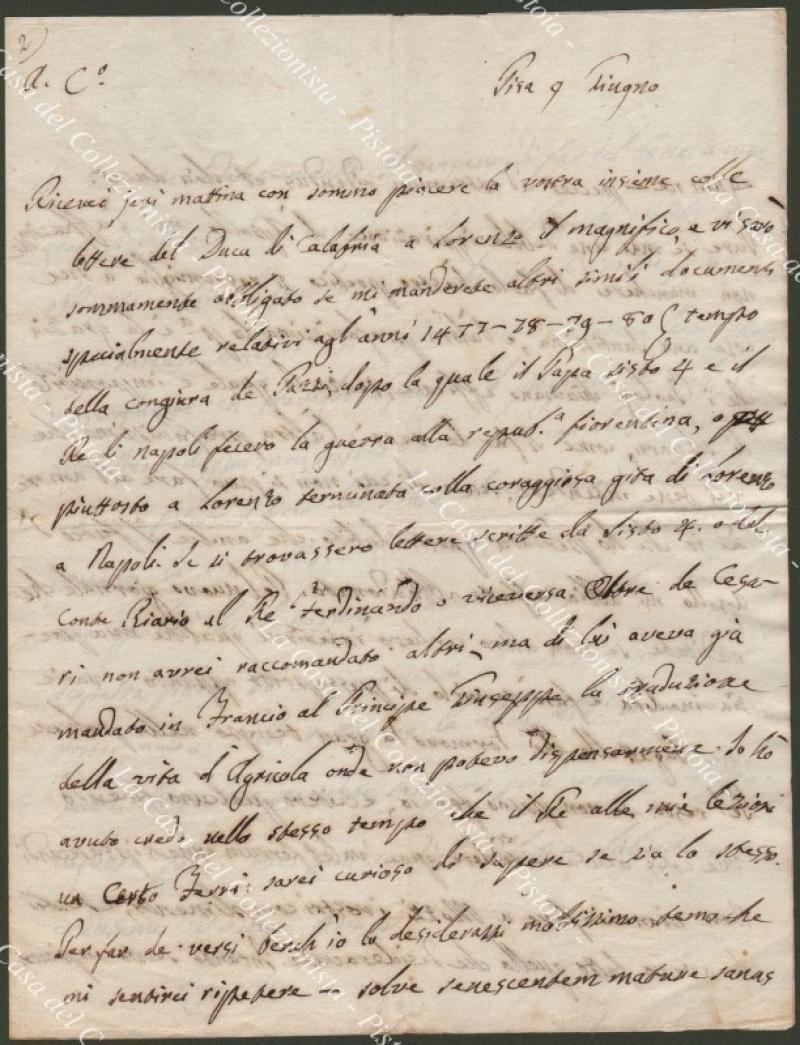 2)
A. C.º
Pisa 9 Giugno
Ricevei jeri mattina con sommo piacere la vostra insieme colle
lettere del Duca di Calabria a Lorenzo il magnifico, e vi sarò
sommamente obbligato se mi manderete altri simili documenti
specialmente relativi agl'anni 1477-78-79-80 tempo
della congiura de Pazzi, dopo la quale il Papa Sisto 4 e il
Re di napoli fecero la guerra alla repub.ª fiorentina, o
piuttosto a Lorenzo terminata colla coraggiosa gita di Lorenzo
a Napoli. Se si trovassero lettere scritte da Sisto 4. o del
Conte Riario al Re Ferdinando o viceversa. Oltre de Cesa-
ri non avrei raccomandato altri, ma di lui aveva già
mandato in Francia al Principe Giuseppe la traduzione
della vita d'Agricola onde non potevo dispensarmene. Io hò
avuto credo nello stesso tempo che il Re alle mie lezioni
un certo Ferri: sarei curioso di sapere se sia lo stesso.
Per far de versi bench'io lo desiderassi moltissimo temo che
mi sentirei ripetere - solve senescentem mature sanas
La Casa del Collezionista - Pistoia -